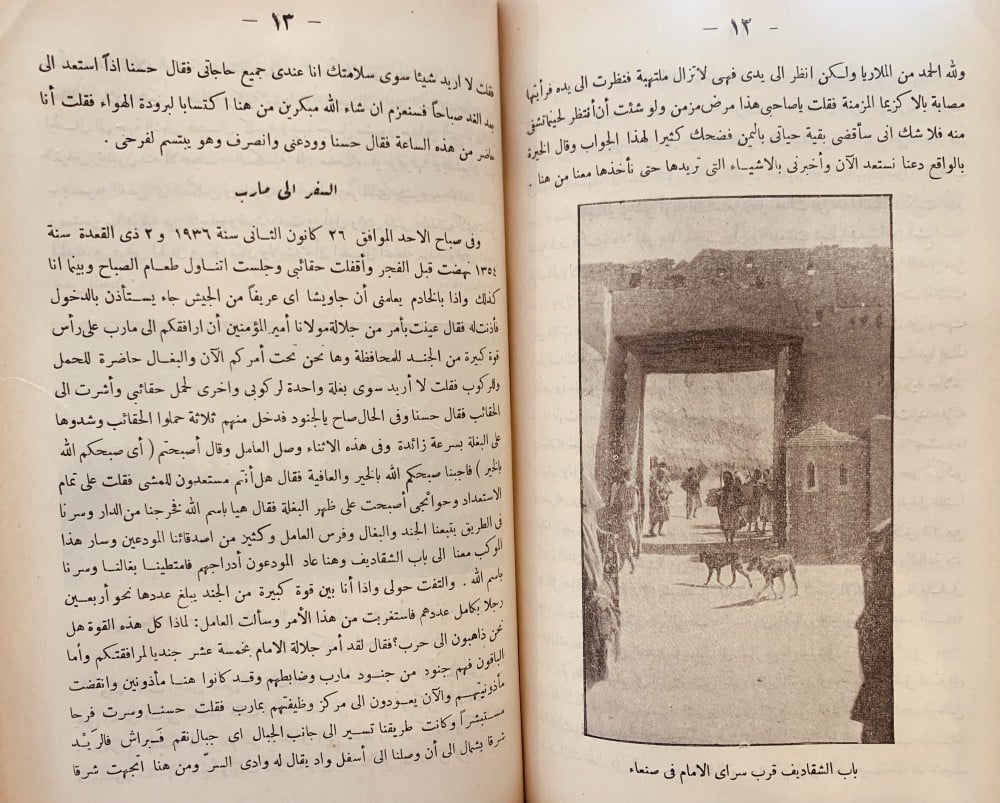 — ١٢ —
ولله الحمد من الملاريا ولكن انظر الى يدى فهى لاتزال ملتهبة فنظرت الى يده فرأيتها
مصابة بالاكزيما المزمنة فقلت ياصاحبى هذا مرض مزمن ولو شئت أن أنتظر لحينماتشفى
منه فلا شك انى سأقضى بقية حياتى باليمن فضحك كثيرا لهذا الجواب وقال الخيرة
بالواقع دعنا نستعد الآن وأخبرنى بالاشياء التى تريدها حتى نأخذها معنا من هنا .
باب الشقاديف قرب سراى الامام فى صنعاء
— ١٣ —
فقلت لا اريد شيئا سوى سلامتك انا عندى جميع حاجاتى فقال حسنا اذاً استعد الى
بعد الغد صباحاً فسنعزم ان شاء الله مبكرين من هنا اكتسابا لبرودة الهواء فقلت أنا
حاضر من هذه الساعة فقال حسنا وودعنى وانصرف وهو يبتسم لفرحى .
السفر الى مارب
وفى صباح الاحد الموافق ٢٦ كانون الثانى سنة ١٩٣٦ و ٢ ذى القعدة سنة
١٣٥٤ نهضت قبل الفجر وأقفلت حقائبى وجلست اتناول طعام الصباح وبينما انا
كذلك واذا بالخادم يعلمنى أن جاويشا اى عريفاً من الجيش جاء يستأذن بالدخول
فأذنت له فقال عينت بأمر من جلالة مولانا أمير المؤمنين أن ارافقكم الى مارب على رأس
قوة كبيرة من الجند للمحافظة وها نحن تحت أمركم الآن والبغال حاضرة للحمل
وللركوب فقلت لا أريد سوى بغلة واحدة لركوبى واخرى لحمل حقائبى وأشرت الى
الحقائب فقال حسنا وفى الحال صاح بالجنود فدخل منهم ثلاثة حملوا الحقائب وشدوها
على البغلة بسرعة زائدة وفى هذه الاثناء وصل العامل وقال أصبحتم ( أى صبحكم الله
بالخير ) فاجبنا صبحكم الله بالخير والعافية فقال هل أنتم مستعدون للمشى فقلت على تمام
الاستعداد وحوائجى أصبحت على ظهر البغلة فقال هيا باسم الله فخرجنا من الدار وسرنا
فى الطريق يتبعنا الجند والبغال وفرس العامل وكثير من اصدقائنا المودعين وسار هذا
الموكب معنا الى باب الشقاديف وهنا عاد المودعون أدراجهم فامتطينا بغالنا وسرنا
باسم الله . والتفت حولى واذا أنا بين قوة كبيرة من الجند يبلغ عددها نحو أربعين
رجلا بكامل عددهم فاستغربت من هذا الأمر وسألت العامل: لماذا كل هذه القوة هل
نحن ذاهبون الى حرب؟ فقال لقد أمر جلالة الامام بخمسة عشر جنديا لمرافقتكم وأما
الباقون فهم جنود من جنود مارب وضابطهم وقد كانوا هنا مأذونين وانقضت
مأذونيتهم والآن يعودون الى مركز وظيفتهم بمارب فقلت حسنا وسرت فرحا
مستبشراً وكانت طريقنا تسير الى جانب الجبال اى جبال نقم فَبراش فالرَيْد
شرقا بشمال الى أن وصلنا الى أسفل واد يقال له وادى السر ومن هنا اتجهت شرقا